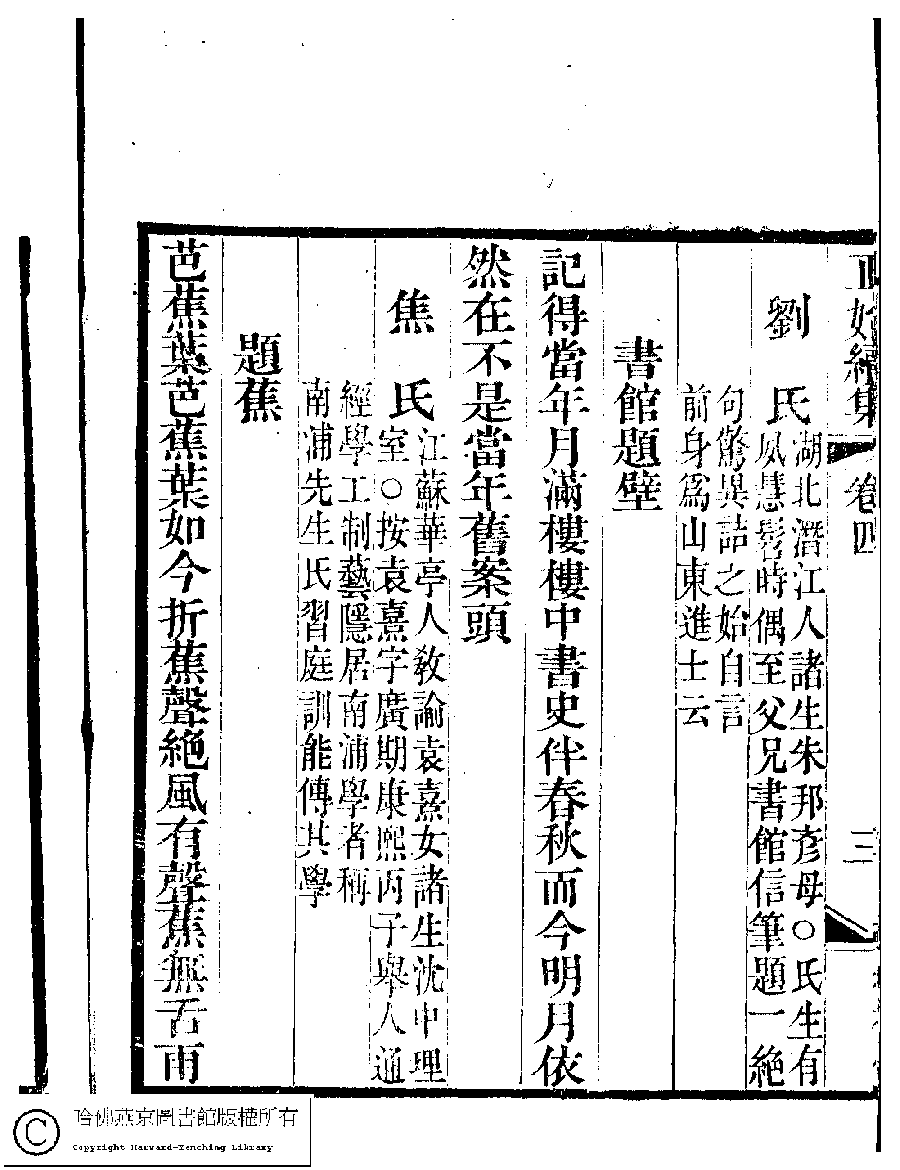 正始續集 卷四 三
劉 氏
湖北潛江人諸生朱邦彥母○氏生有
夙慧髫時偶至父兄書館信筆題一絕
句驚異詰之始自言
前身為山東進士云
書館題壁
記得當年月滿樓樓中書史伴春秋而今明月依
然在不是當年舊案頭
焦 氏
江蘇華亭人教諭袁熹女諸生沈中理
室○按袁熹字廣期康熙丙子舉人通
經學工制藝隱居南浦學者稱
南浦先生氏習庭訓能傳其學
題蕉
芭蕉葉芭蕉葉如今折蕉聲絕風有聲蕉無舌雨
哈佛燕京圖書館版權所有
Copyright Harvard-Yenching Library